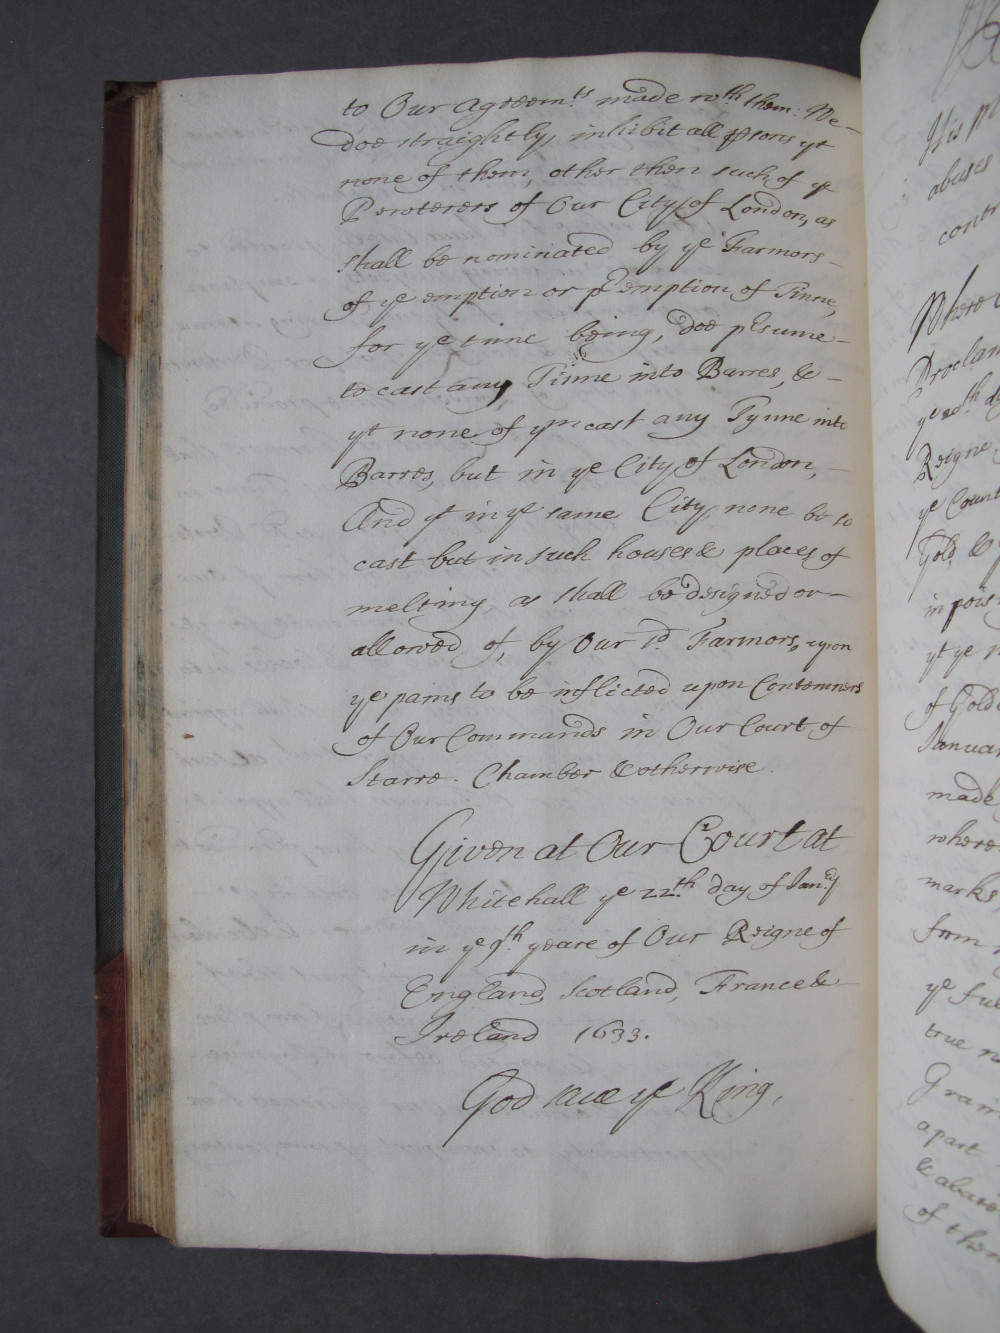 to Our agreemts made wth them. We
doe straightly inhibit all psons yt
none of them, other then such of ye
Pewterers of Our City of London, as
shall be nominated by ye Farmors
of ye emption or pemption of Tinne,
for ye time being, doe psume
to cast any Tinne into Barres, &
yt none of ym cast any Tynne into
Barres, but in ye City of London,
And yt in ye same City, none be so
cast but in such houses & places of
melting as shall be designed or
allowed of, by Our sd Farmors, upon
ye pains to be inflicted upon Contemners
of Our Commands in Our Court of
Starre-Chamber & otherwise.
Given at Our Court at
Whitehall ye 22th day of Janry
in ye 9th yeare of Our Reigne of
England, Scotland, France &
Ireland 1633.
God save ye King.
His
abuses
contr
Where
Proclam
ye 20th d
Reigne
ye Count
Gold &
in pois
yt ye
of Gold
Januar
made
where
marks,
from
ye ful
true
Grain
apart
& abate
of them